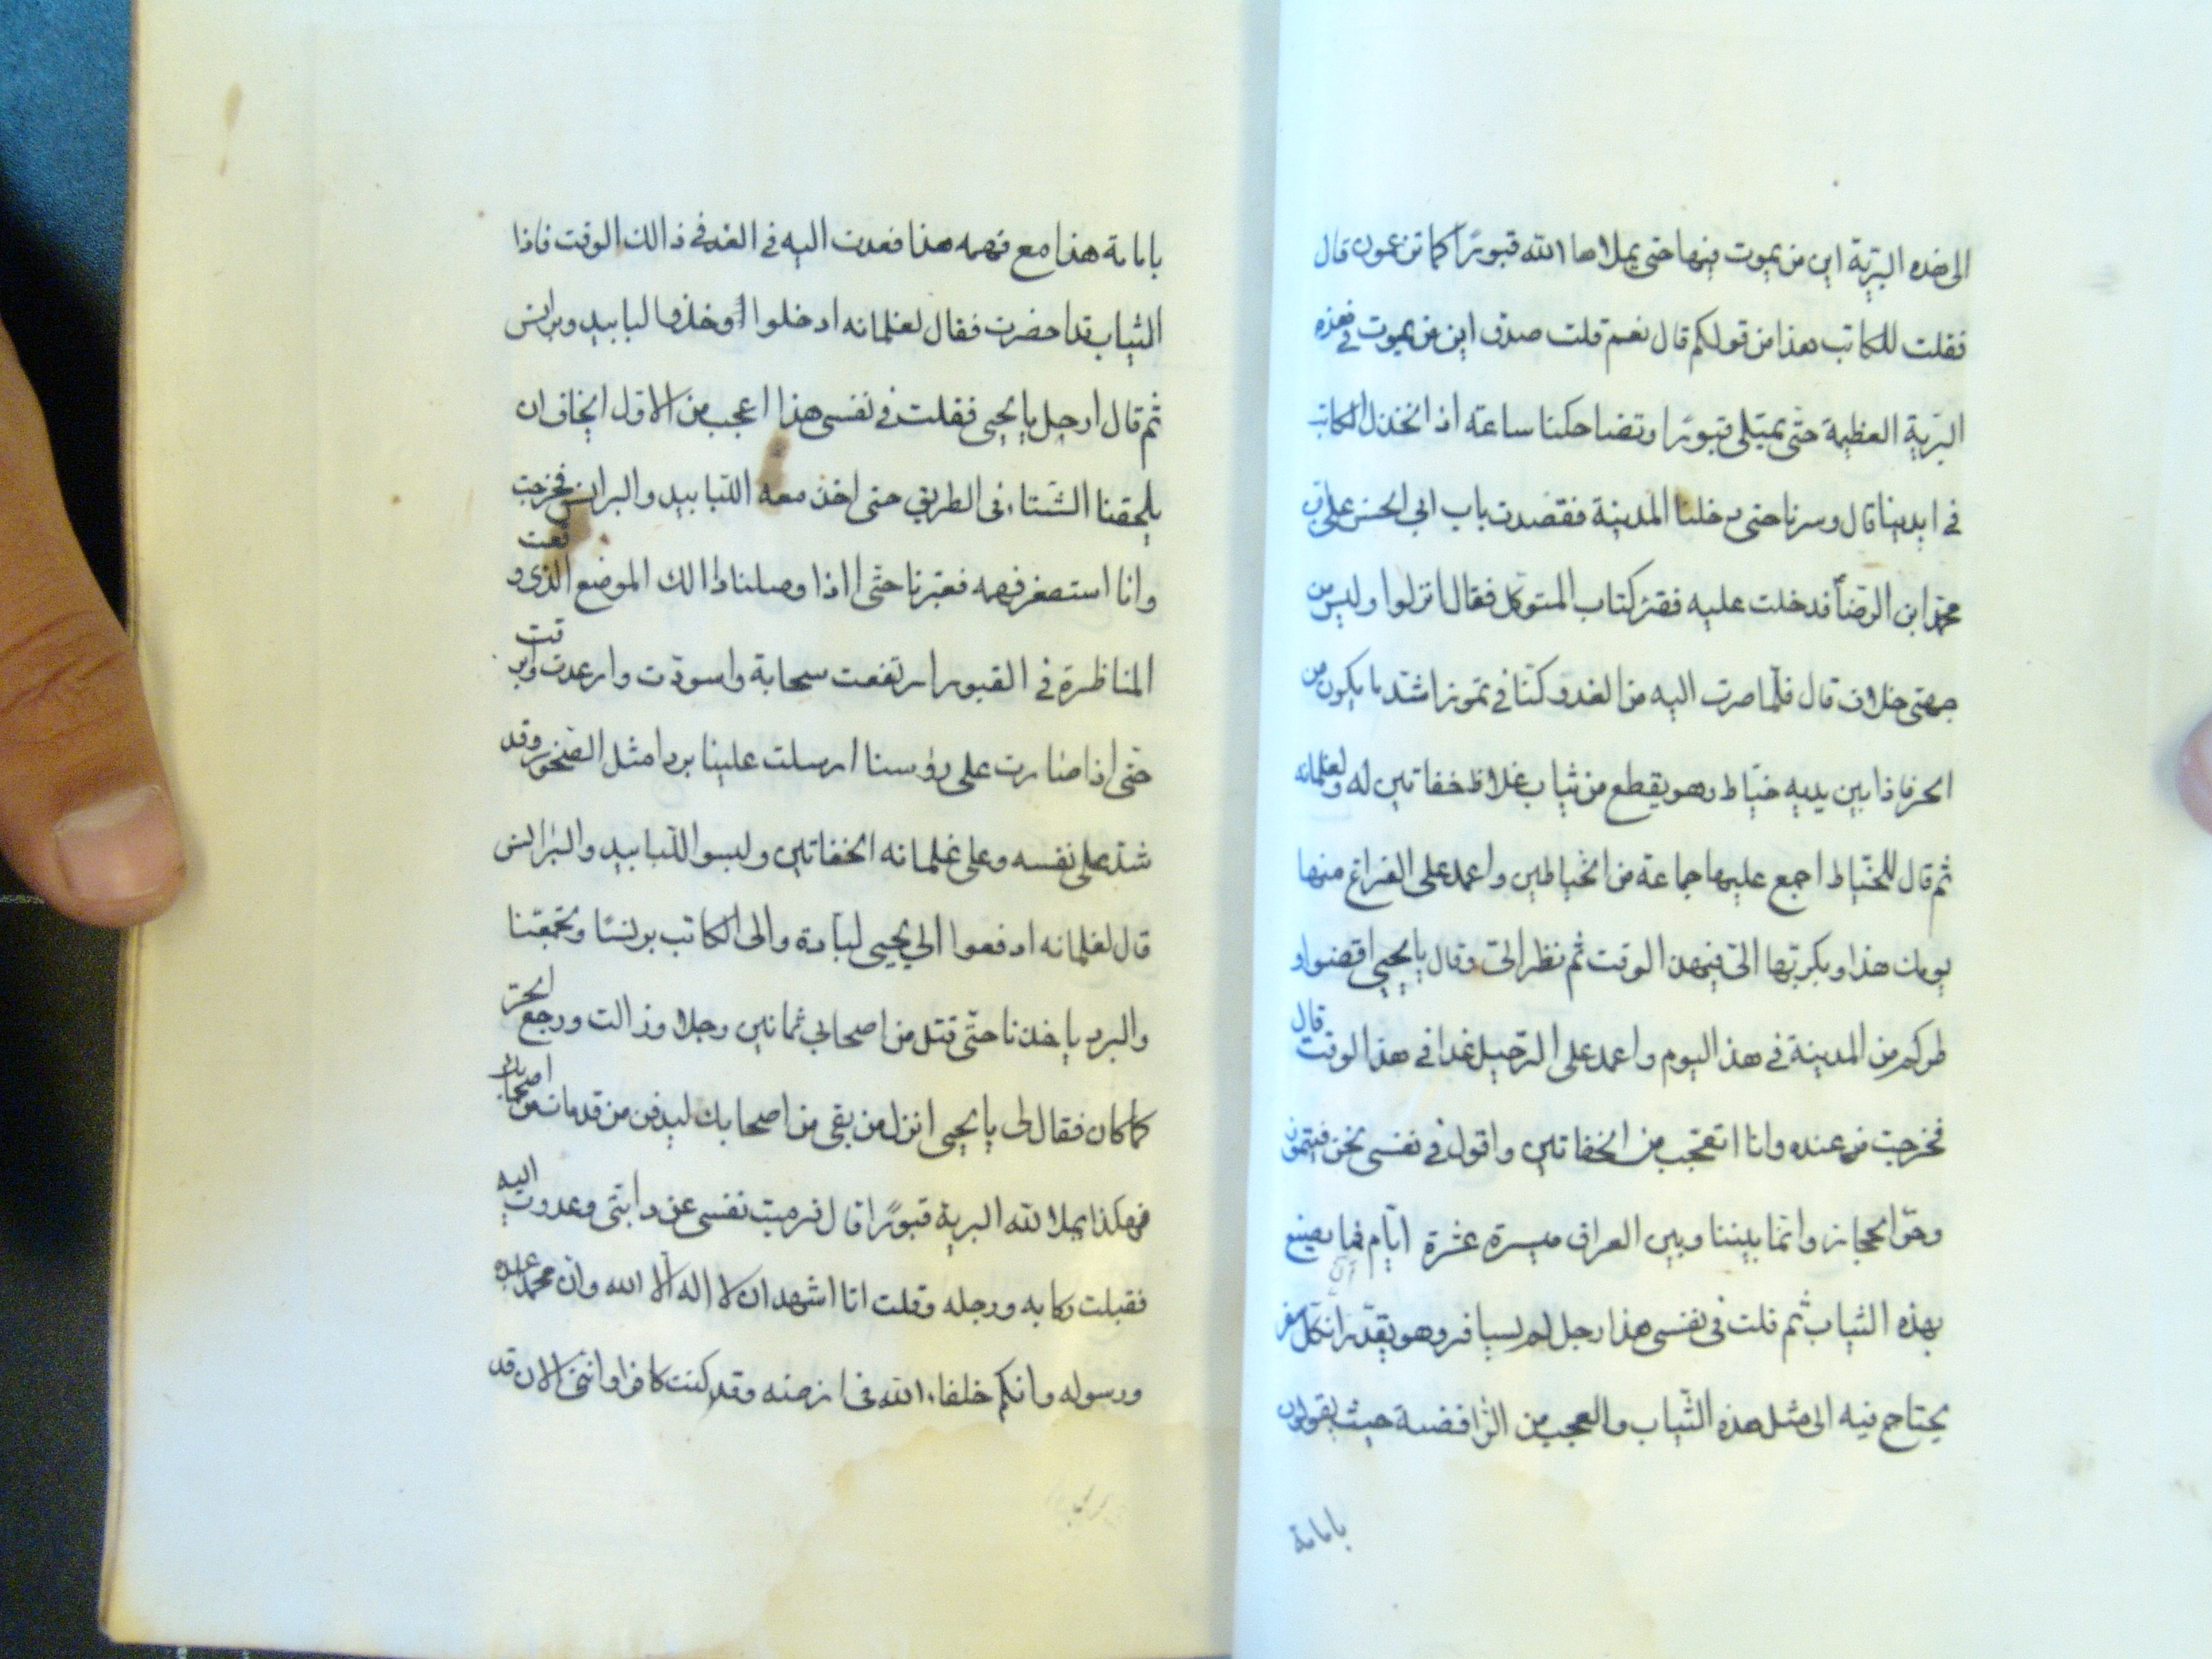 الى هذه البرّية اين من يموت فيها حتى يملاها الله قبورًا كما تزعمون قال
فقلت للكاتب هذا من قولكم قال نعم قلت صدق اين من يموت في هذه
البرّية العظيمة حتّى يمتلى قبورًا وتضاحكنا ساعة اذا نخذل الكاتب
في ايدينا قال وسرنا حتى دخلنا المدينة فقصدت باب ابي الحسن علي بن
محمّد ابن الرضا فدخلت عليه فقرء كتاب المتوكل فقال انزلوا وليس من
جهتى خلاف قال فلمّا صرت اليه من الغد وكنّا في تموز اشتد ما يكون من
الحر فاذا بين يديه خيّاط وهو يقطع من ثياب غلاظ خفاتين له ولغلمانه
ثم قال للخيّاط اجمع عليها جماعة من الخياطين واعمد على الفراغ منها
يومك هذا وبكر بها الىّ في هذ الوقت ثم نظر الىّ وقال يا يحيى اقضوا و
طركم من المدينة في هذ اليوم واعمد على الرّحيل غدا في هذ الوقت قال
فخرجت من عنده وانا اتعجّب من الخفاتين واقول في نفسى نحن في تموز
وحرّ الحجاز وانّما بيننا وبين العراق مسيرة عشرة ايّام فما يصنع
بهذه الثياب ثم قلت فى نفسى هذا رجل لم يسافر وهو يقدّر ان كل سفر
يحتاج فيه الى مثل هذه الثّياب والعجب من الرّافضة حيث يقولون
بامامة
بامامة هذا مع فهمه هذا فعدت اليه في الغد في ذالك الوقت فاذا
الثياب قد احضرت فقال لغلمانه ادخلوا وخذوا لبابيد وبرانس
ثم قال ارحل يا يحيى فقلت في نفسى هذا اعجب من الاوّل ايخاف ان
يلحقنا الشّتاء فى الطريق حتى اخذ معه اللّبابيد والبرانس فخرجت
وانا استصغر فهمه فعبّرنا حتّى اذا وصلنا ذالك الموضع الذى وقعت
المناظرة في القبور ارتفعت سحابة واسودّت وارعدت وابرقت
حتّى اذا صارت على رؤسنا ارسلت علينا بردا مثل الصّخور وقد
شدّ على نفسه وعلى غلمانه الخفاتين ولبسوا اللّبابيد والبرانس
قال لغلمانه ادفعوا الي يحيى لبّادة والى الكاتب برنسًا وتجمّعنا
والبرد ياخذنا حتّى قتل من اصحابي ثمانين رجلا وزالت ورجع الحرّ
كما كان فقال لى يا يحيى انزل من بقى من اصحابك ليدفن من قد مات من اصحابك
فهكذا يملا الله البرية قبورًا قال فرميت نفسى عن دابّتى وعدوت اليه
فقبلت ركابه ورجله وقلت انا اشهد ان لا اله الّا الله وانّ محمّد عبده
ورسوله وانكم خلفاء الله فى ارضه وقد كنت كافرا وانّنى الان قد